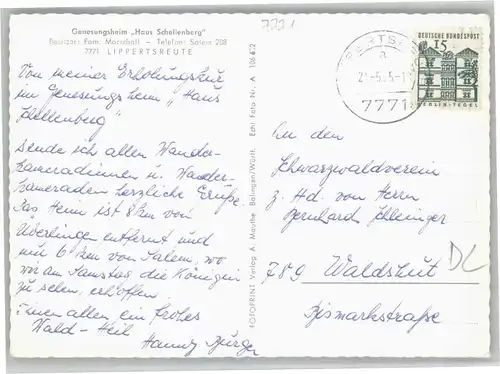 Genesungsheim „Haus Schellenberg"
Besitzer: Fam. Marschall - Telefon: Salem 208
7771 LIPPERTSREUTE
Von meiner Erholungskur
im Genesungsheim „Haus
Schellenberg"
sende ich allen Wander-
kameradinnen u. Wander-
kameraden herzliche Grüße.
Das Heim ist 8 km von
Überlingen entfernt und
nur 6 km von Salem, wo
wir am Samstag die Königin
zu sehen, erhoffen.
Ihnen allen ein frohes
Wald-Heil
Hanny Burger
FOTOPRINT Verlag A. Mache Balingen/Württ. Echt Foto Nr. A 106 62
7771
DEUTSCHE BUNDESPOST
15
BERLIN-TEGEL
a
7771
An den
Schwarzwaldverein
z. Hd. von Herrn
Bernhard
789 Waldshut
Bismarkstraße
DL